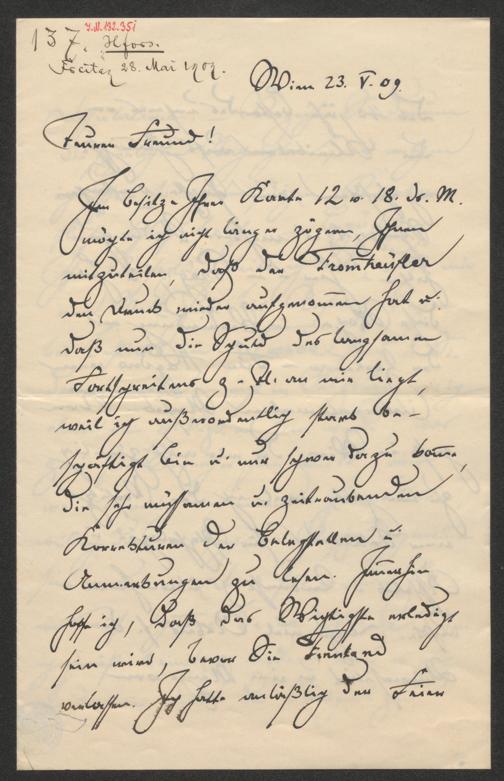 I.N. 132.351
137. Hfors.
Freitag 28. Mai 1909.
Wien 23. V. 09.
Teurer Freund!
Im Besitze Ihrer Karte 12 u. 18. ds. M.
möchte ich nicht länger zögern, Ihnen
mitzuteilen, daß der Fromhäusler
den Druck wieder aufgenommen hat u.
daß nun die Schuld des langsamen
Fortschreitens z. Tl. an mir liegt,
weil ich außerordentlich stark be-
schäftigt bin u. nur schwer dazu komme,
die sehr mühsamen u. zeitraubenden
Korrekturen der Belegstellen u.
Anmerkungen zu lesen. Immerhin
hoffe ich, daß das Wichtigste erledigt
sein wird, bevor Sie Finnland
verlassen. Ich hatte anläßlich der Feier